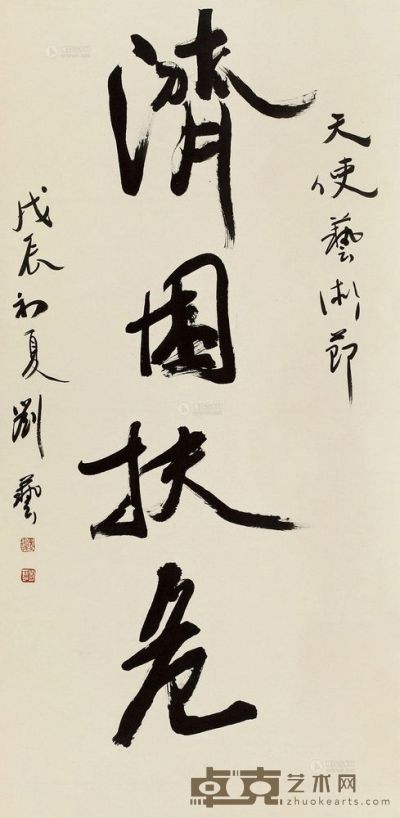 天使藝術節
濟困扶危
戊辰初夏劉藝
卓克艺术网
zhuokearts.com